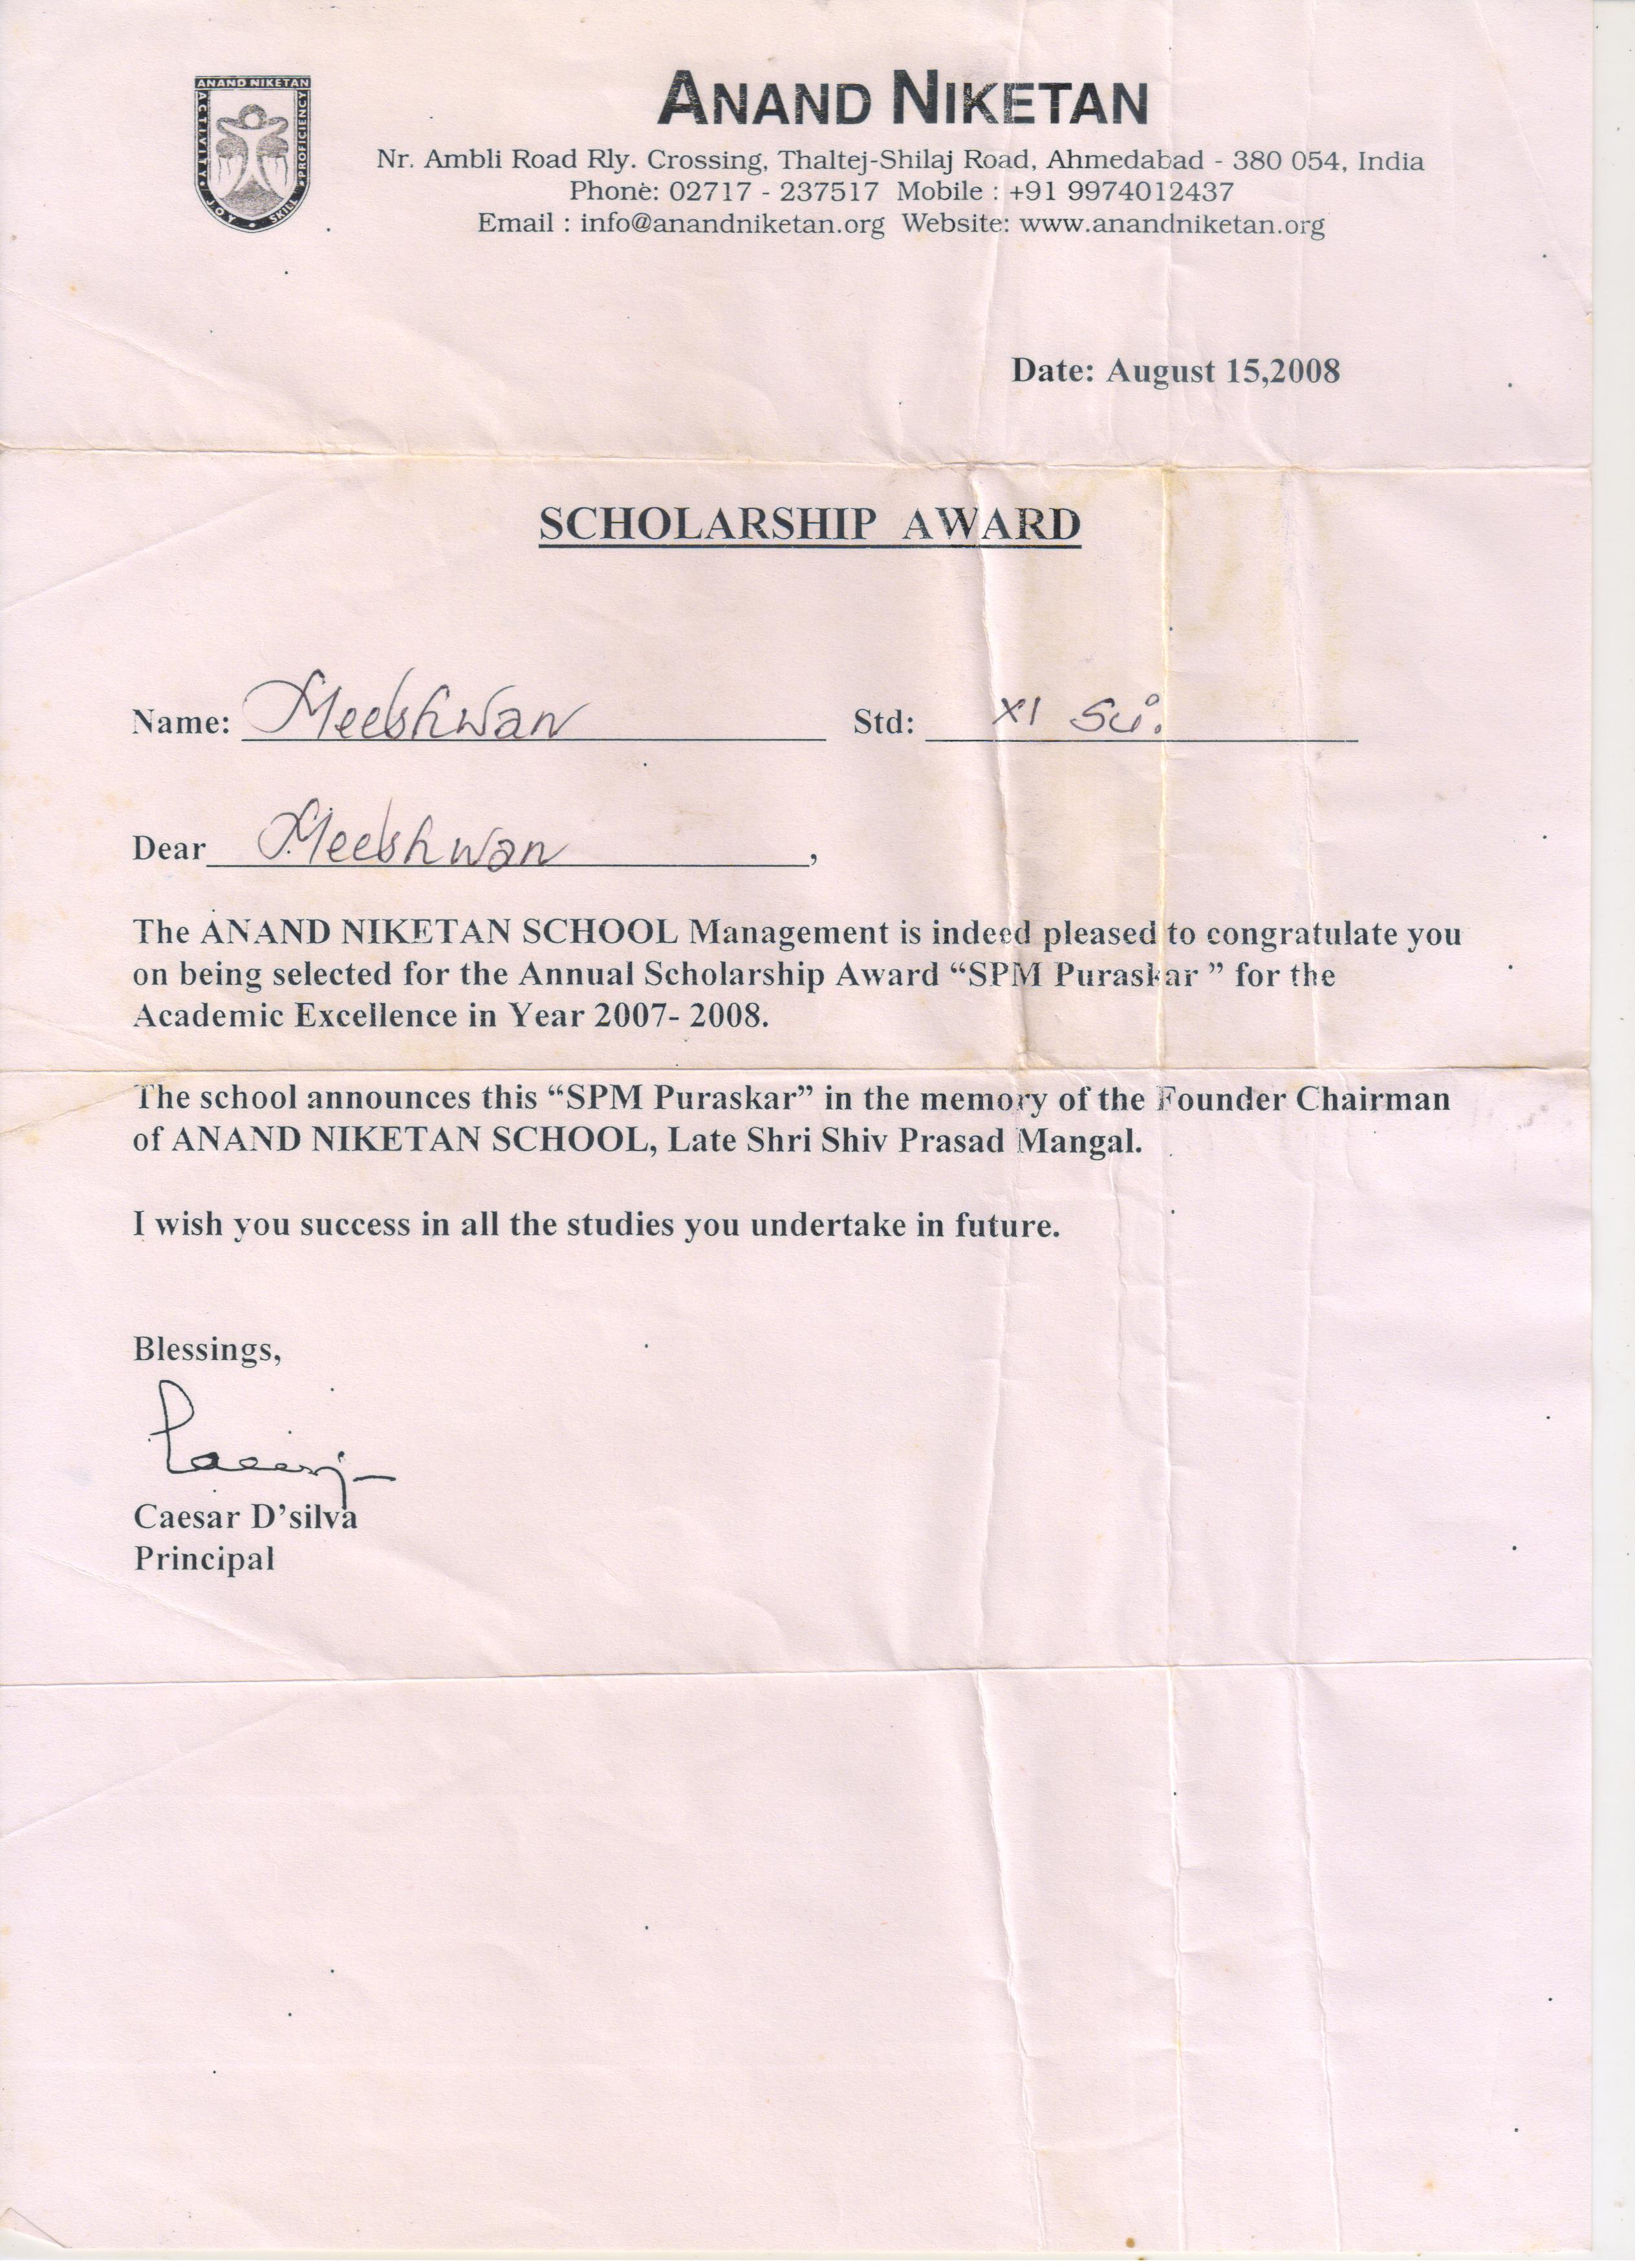 ANAND NIKETAN
ACTIVITY • JOY • SKILL • PROFICIENCY
ANAND NIKETAN
Nr. Ambli Road Rly. Crossing, Thaltej-Shilaj Road, Ahmedabad - 380 054, India
Phone: 02717 - 237517 Mobile : +91 9974012437
Email : info@anandniketan.org Website: www.anandniketan.org
Date: August 15,2008
SCHOLARSHIP AWARD
Name: Meeshwan Std: XI Sci.
Dear Meeshwan,
The ANAND NIKETAN SCHOOL Management is indeed pleased to congratulate you
on being selected for the Annual Scholarship Award “SPM Puraskar ” for the
Academic Excellence in Year 2007- 2008.
The school announces this “SPM Puraskar” in the memory of the Founder Chairman
of ANAND NIKETAN SCHOOL, Late Shri Shiv Prasad Mangal.
I wish you success in all the studies you undertake in future.
Blessings,
Caesar D’silva
Principal